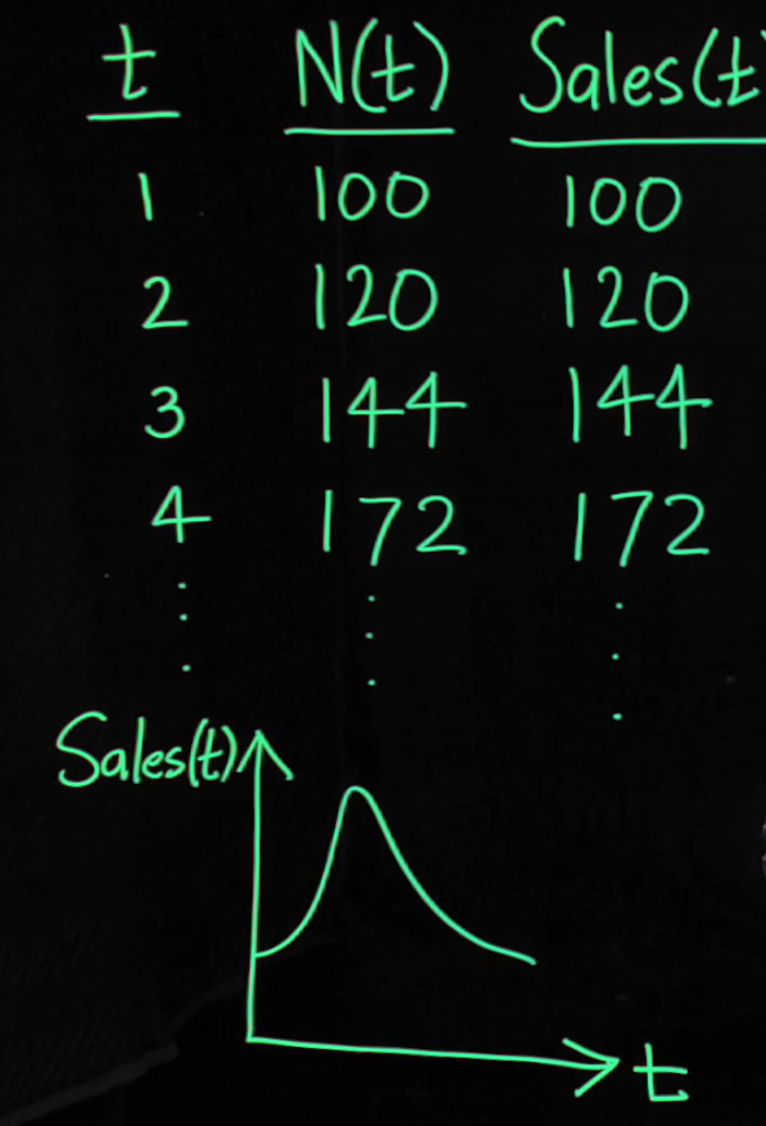 t N(t) Sales(t)
1 100 100
2 120 120
3 144 144
4 172 172
Sales(t)
t